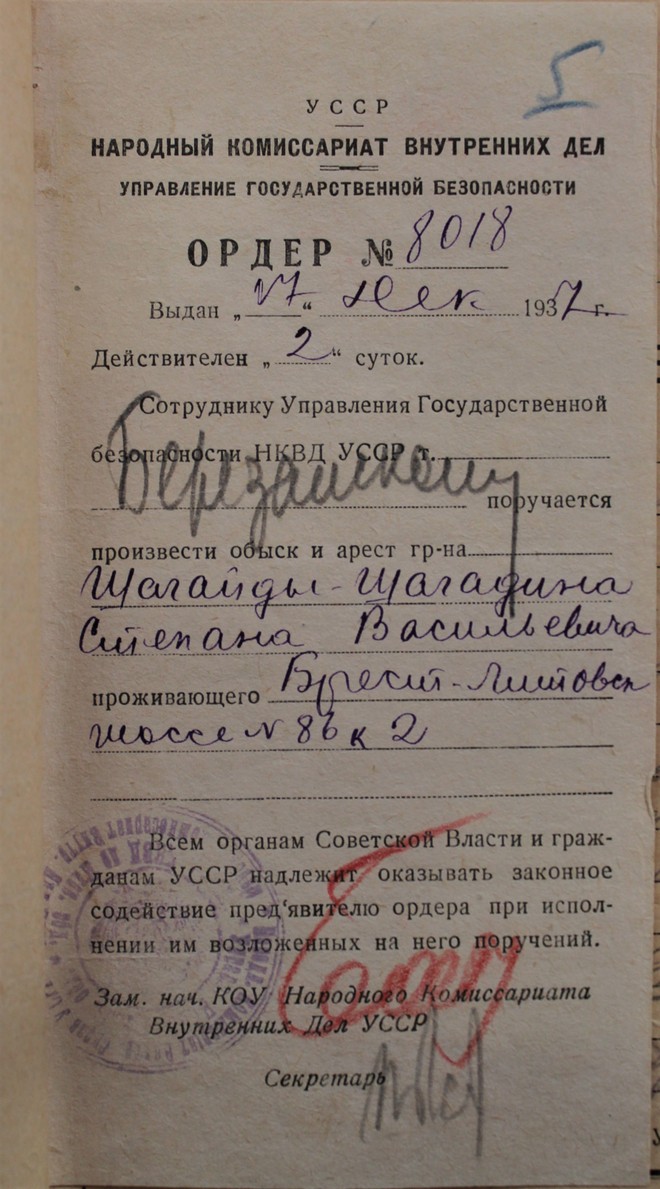 5
УССР
НАРОДНЫЙ КОМИССАРИАТ ВНУТРЕННИХ ДЕЛ
УПРАВЛЕНИЕ ГОСУДАРСТВЕННОЙ БЕЗОПАСНОСТИ
ОРДЕР № 8018
Выдан „17“ дек 1937 г.
Действителен „2“ суток.
Сотруднику Управления Государственной
безопасности НКВД УССР т.
поручается
произвести обыск и арест гр-на
Шагайды-Шагадина
Степана Васильевича
проживающего Брест-Литовск
шоссе N 86 к 2
Всем органам Советской Власти и граж-
данам УССР надлежит оказывать законное
содействие пред‘явителю ордера при испол-
нении им возложенных на него поручений.
Зам. нач. КОУ Народного Комиссариата
Внутренних Дел УССР
Секретарь